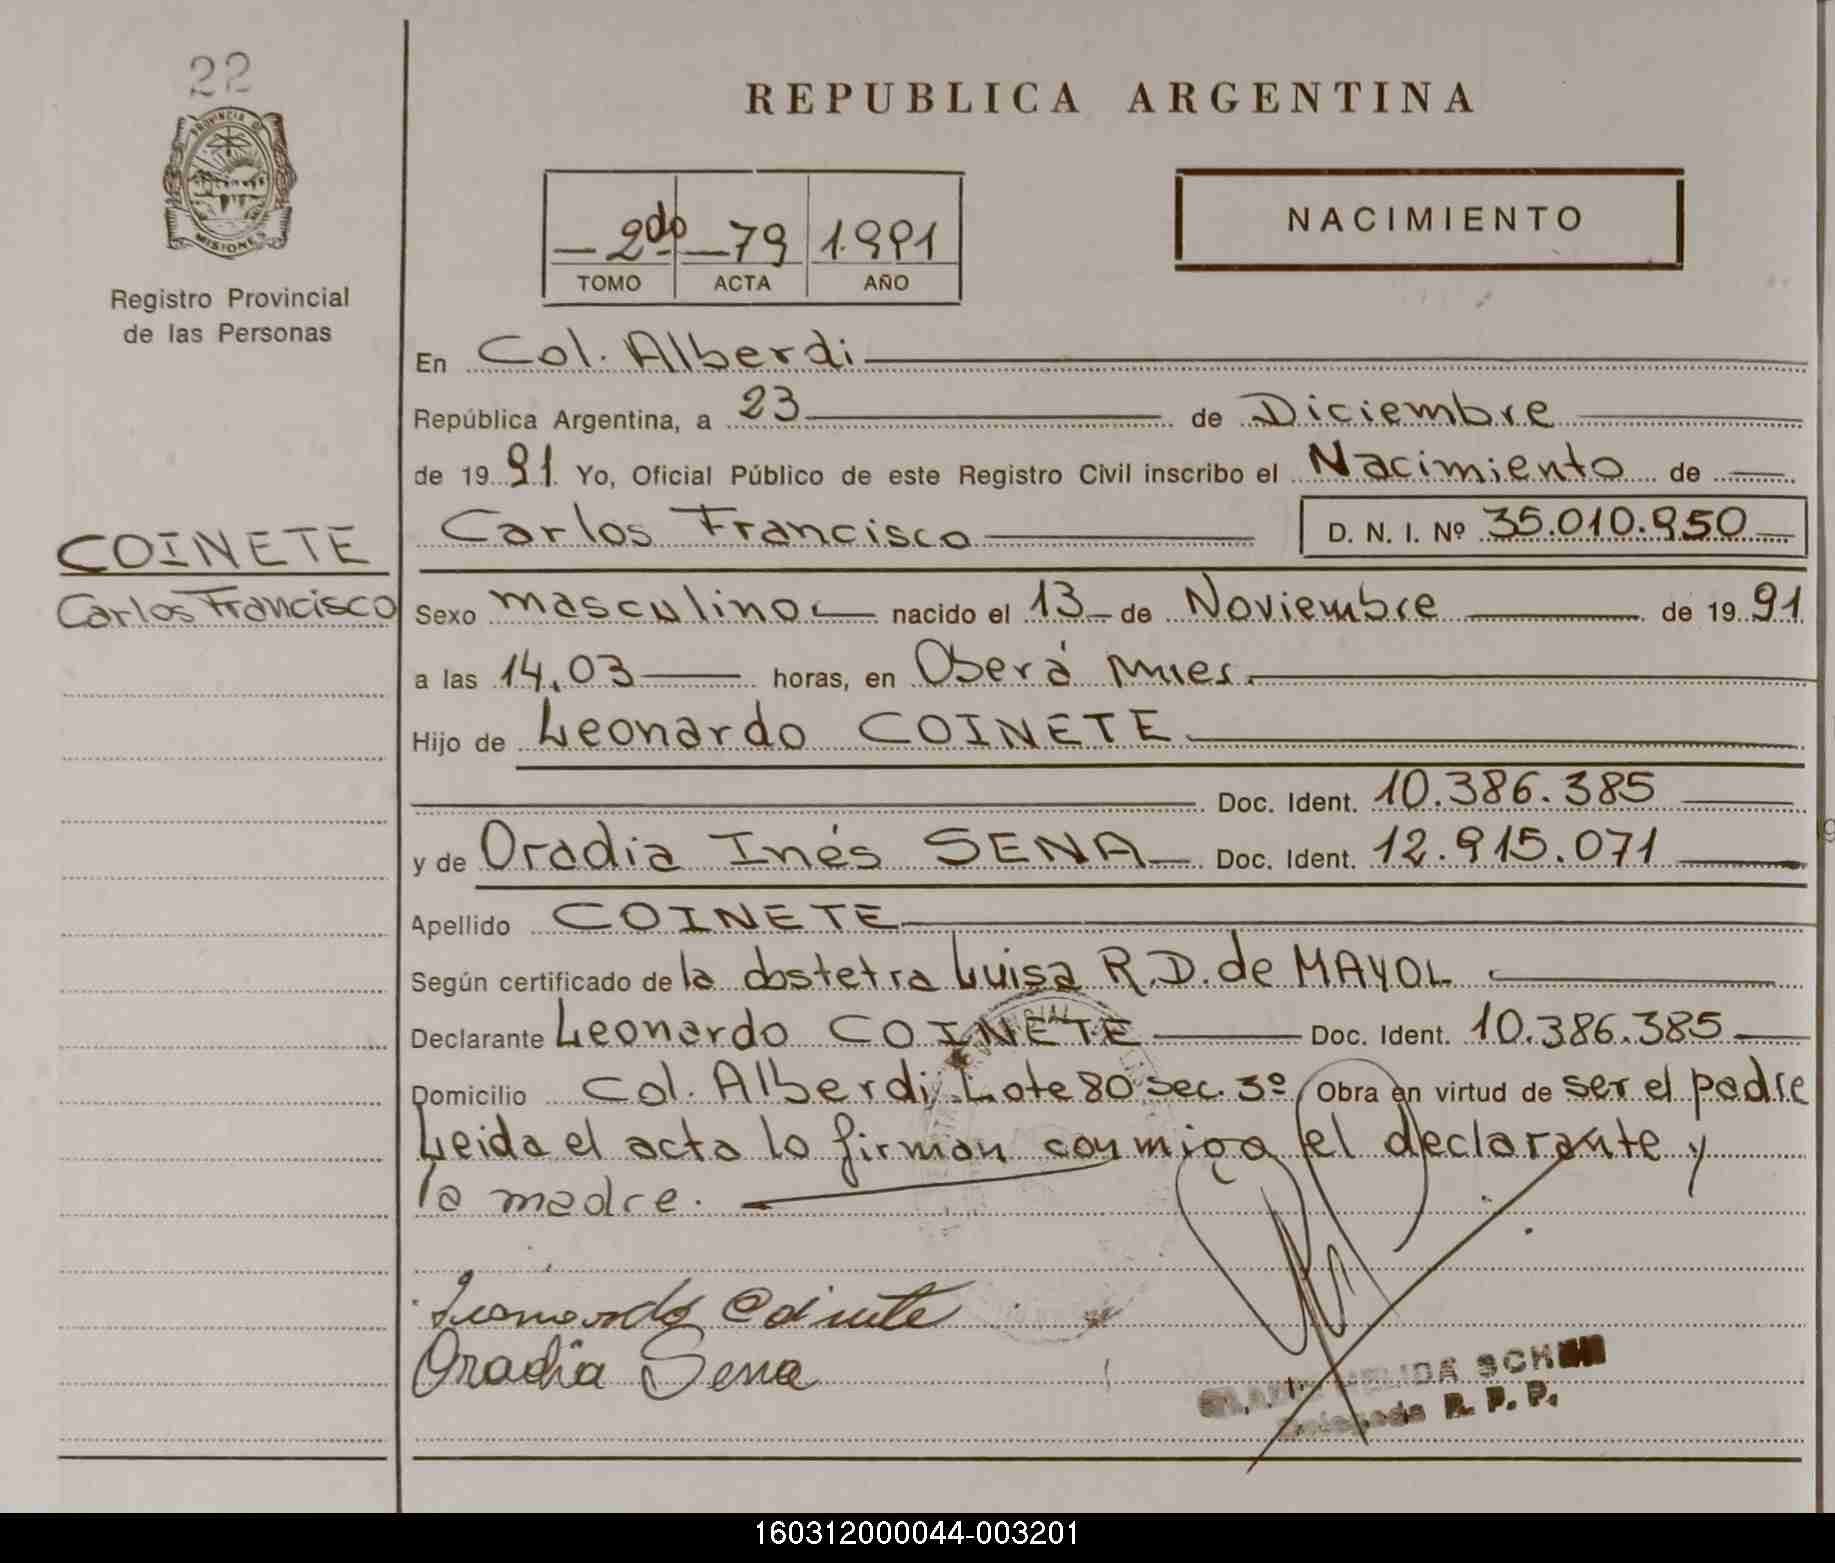 22
PROVINCIA DE
MISIONES
Registro Provincial
de las Personas
REPUBLICA ARGENTINA
2do 79 1.991
TOMO ACTA AÑO
NACIMIENTO
En Col. Alberdi
República Argentina, a 23 de Diciembre
de 19 91. Yo, Oficial Público de este Registro Civil inscribo el Nacimiento de
COINETE
Carlos Francisco
Carlos Francisco D. N. I. Nº 35.010.950
Sexo masculino nacido el 13 de Noviembre de 19 91
a las 14,03 horas, en Oberá Mnes.
Hijo de Leonardo COINETE
Doc. Ident. 10.386.385
y de Oradia Inés SENA Doc. Ident. 12.915.071
Apellido COINETE
Según certificado de la obstetra Luisa R.D. de MAYOL
Declarante Leonardo COINETE Doc. Ident. 10.386.385
Domicilio Col. Alberdi, Lote 80 sec. 3º Obra en virtud de ser el padre
Leida el acta lo firman conmigo el declarante y
la madre.
Leonardo Coinete
Oradia Sena
NELIDA
Delegada R. P. P.
160312000044-003201